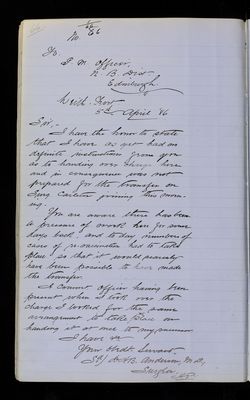 No. 86
To
P. M. Officer,
N. B. Dist
Edinburgh
Leith Fort
5th April 86
Sir,
I have the honor to state
that I have as yet had no
definite instructions from you
as to handing over charge here
and in consequence was not
prepared for the transfer on
Surg Carleton joining this morn-
ing.
You are aware there has been
a pressure of work here for some
days and to day numbers of
case of re-vaccination had to take
place so that it would scarcely
have been possible to have made
the transfer.
A Commt officer having been
present when I took over the
charge I looked for the same
arrangement to take place on
handing it over to my successor
I have &c
Your Obdt Servant.
Sd/ Anderson, M.D,
Surgeon